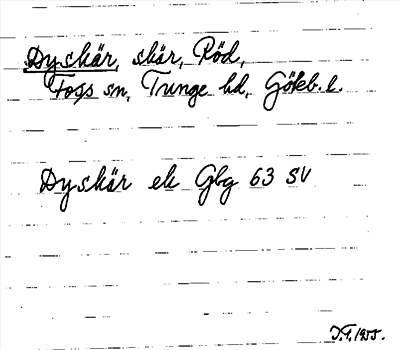 Dyskär, skär, Röd,
Foss sn, Tunge hd, Göteb. l.
Dyskär ek Gbg 63 SV